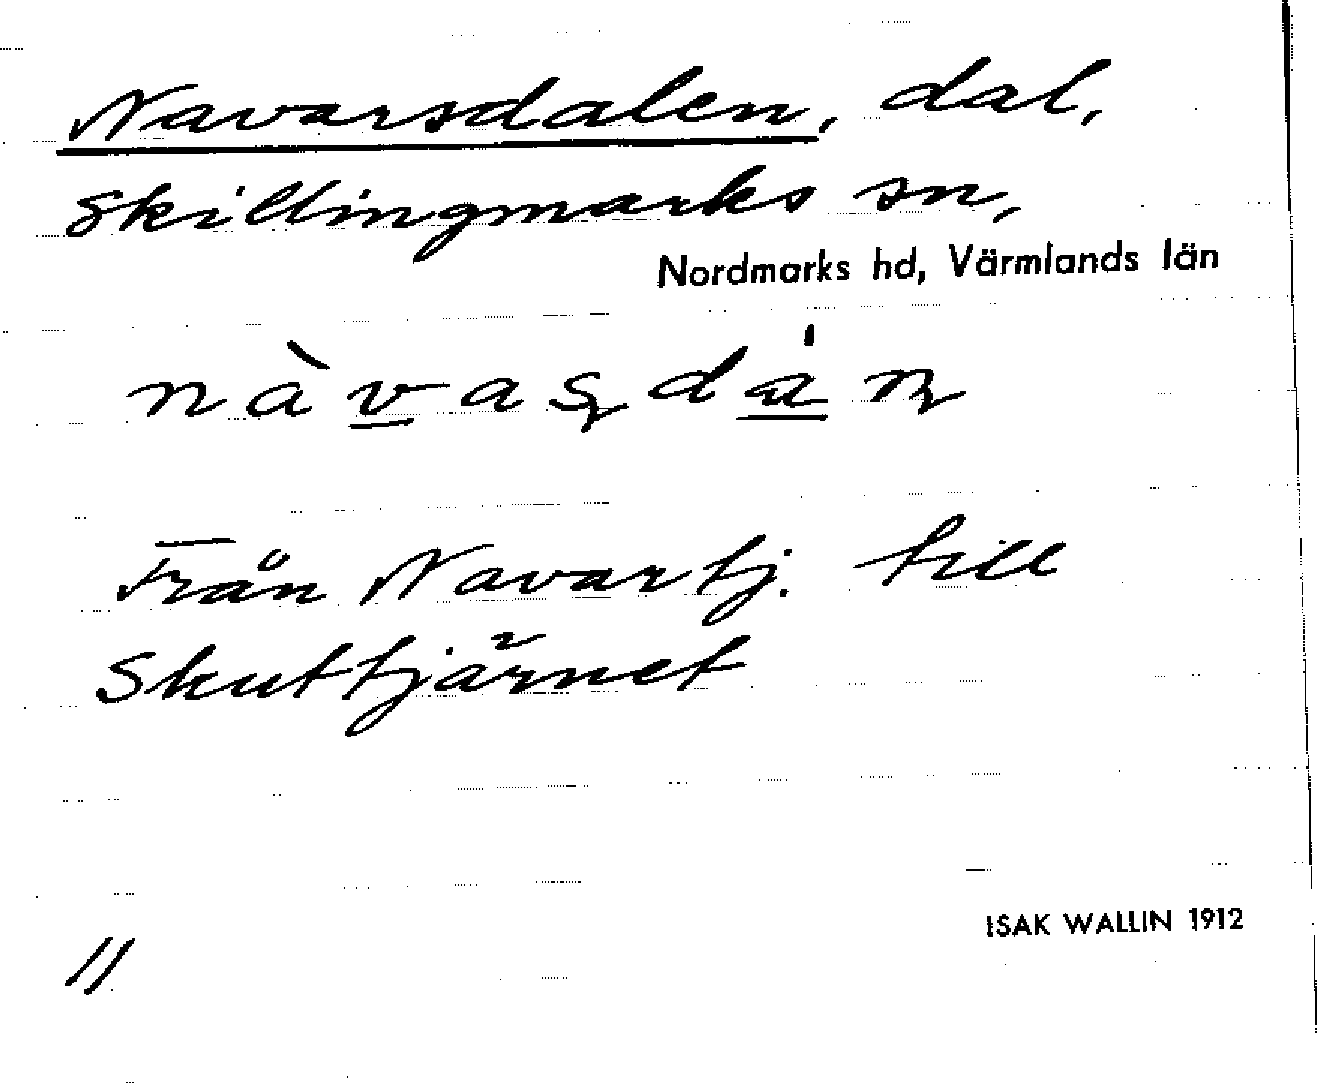 Navarsdalen, dal,
Skillingmarks sn,
Nordmarks hd, Värmlands län
nàvaʂdáɳ
Från Navartj. till
Skuttjärnet
ISAK WALLIN 1912
11